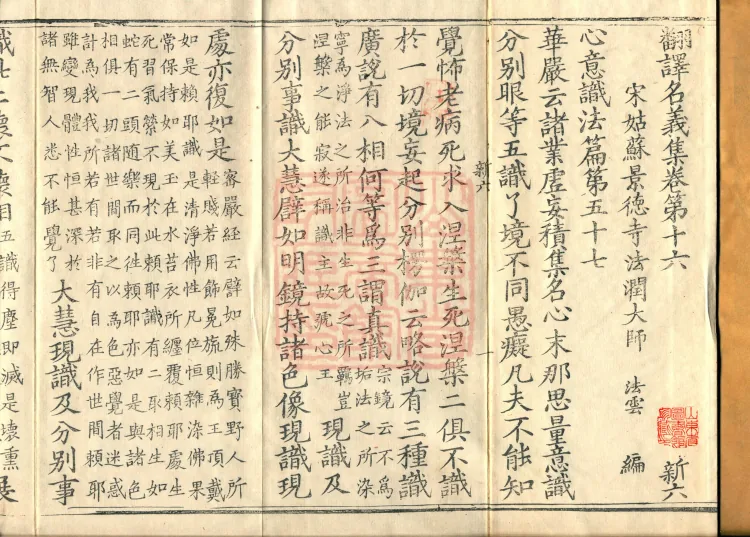 翻譯名義集卷第十六 新六
宋姑蘇景德寺法潤大師 法雲 編
心意識法篇第五十七
華嚴云諸業虛妄積集名心末那思量意識
分別眼等五識了境不同愚癡凡夫不能知
新六 一
覺怖老病死求入涅槃生死涅槃二俱不識
於一切境妄起分別楞伽云略說有三種識
廣說有八相何等爲三謂真識
宗鏡云不爲
垢法之所染
寧爲淨法之所治非生死之所羈豈
涅槃之能寂邃稱識主故號心王
現識及
分別事識大慧譬如明鏡持諸色像現識現
處亦復如是
密嚴經云譬如殊勝寶野人所
輕賤若用飾冕旒則爲王頂戴
如是賴耶識是清淨佛性凡位恒雜染佛果
常保持如美玉在水苔衣所纏覆賴耶處生
死習氣縈不現於此賴耶識有二取相生如
蛇有二頭隨樂而同徃賴耶亦如是與諸色
相俱一切諸世間取之以爲色惡覺者迷惑
計爲我我所若有若非有自在作世間賴耶
雖變現體性恒甚深於
諸無智人悉不能覺了
大慧現識及分別事
五識得塵即滅是壞熏